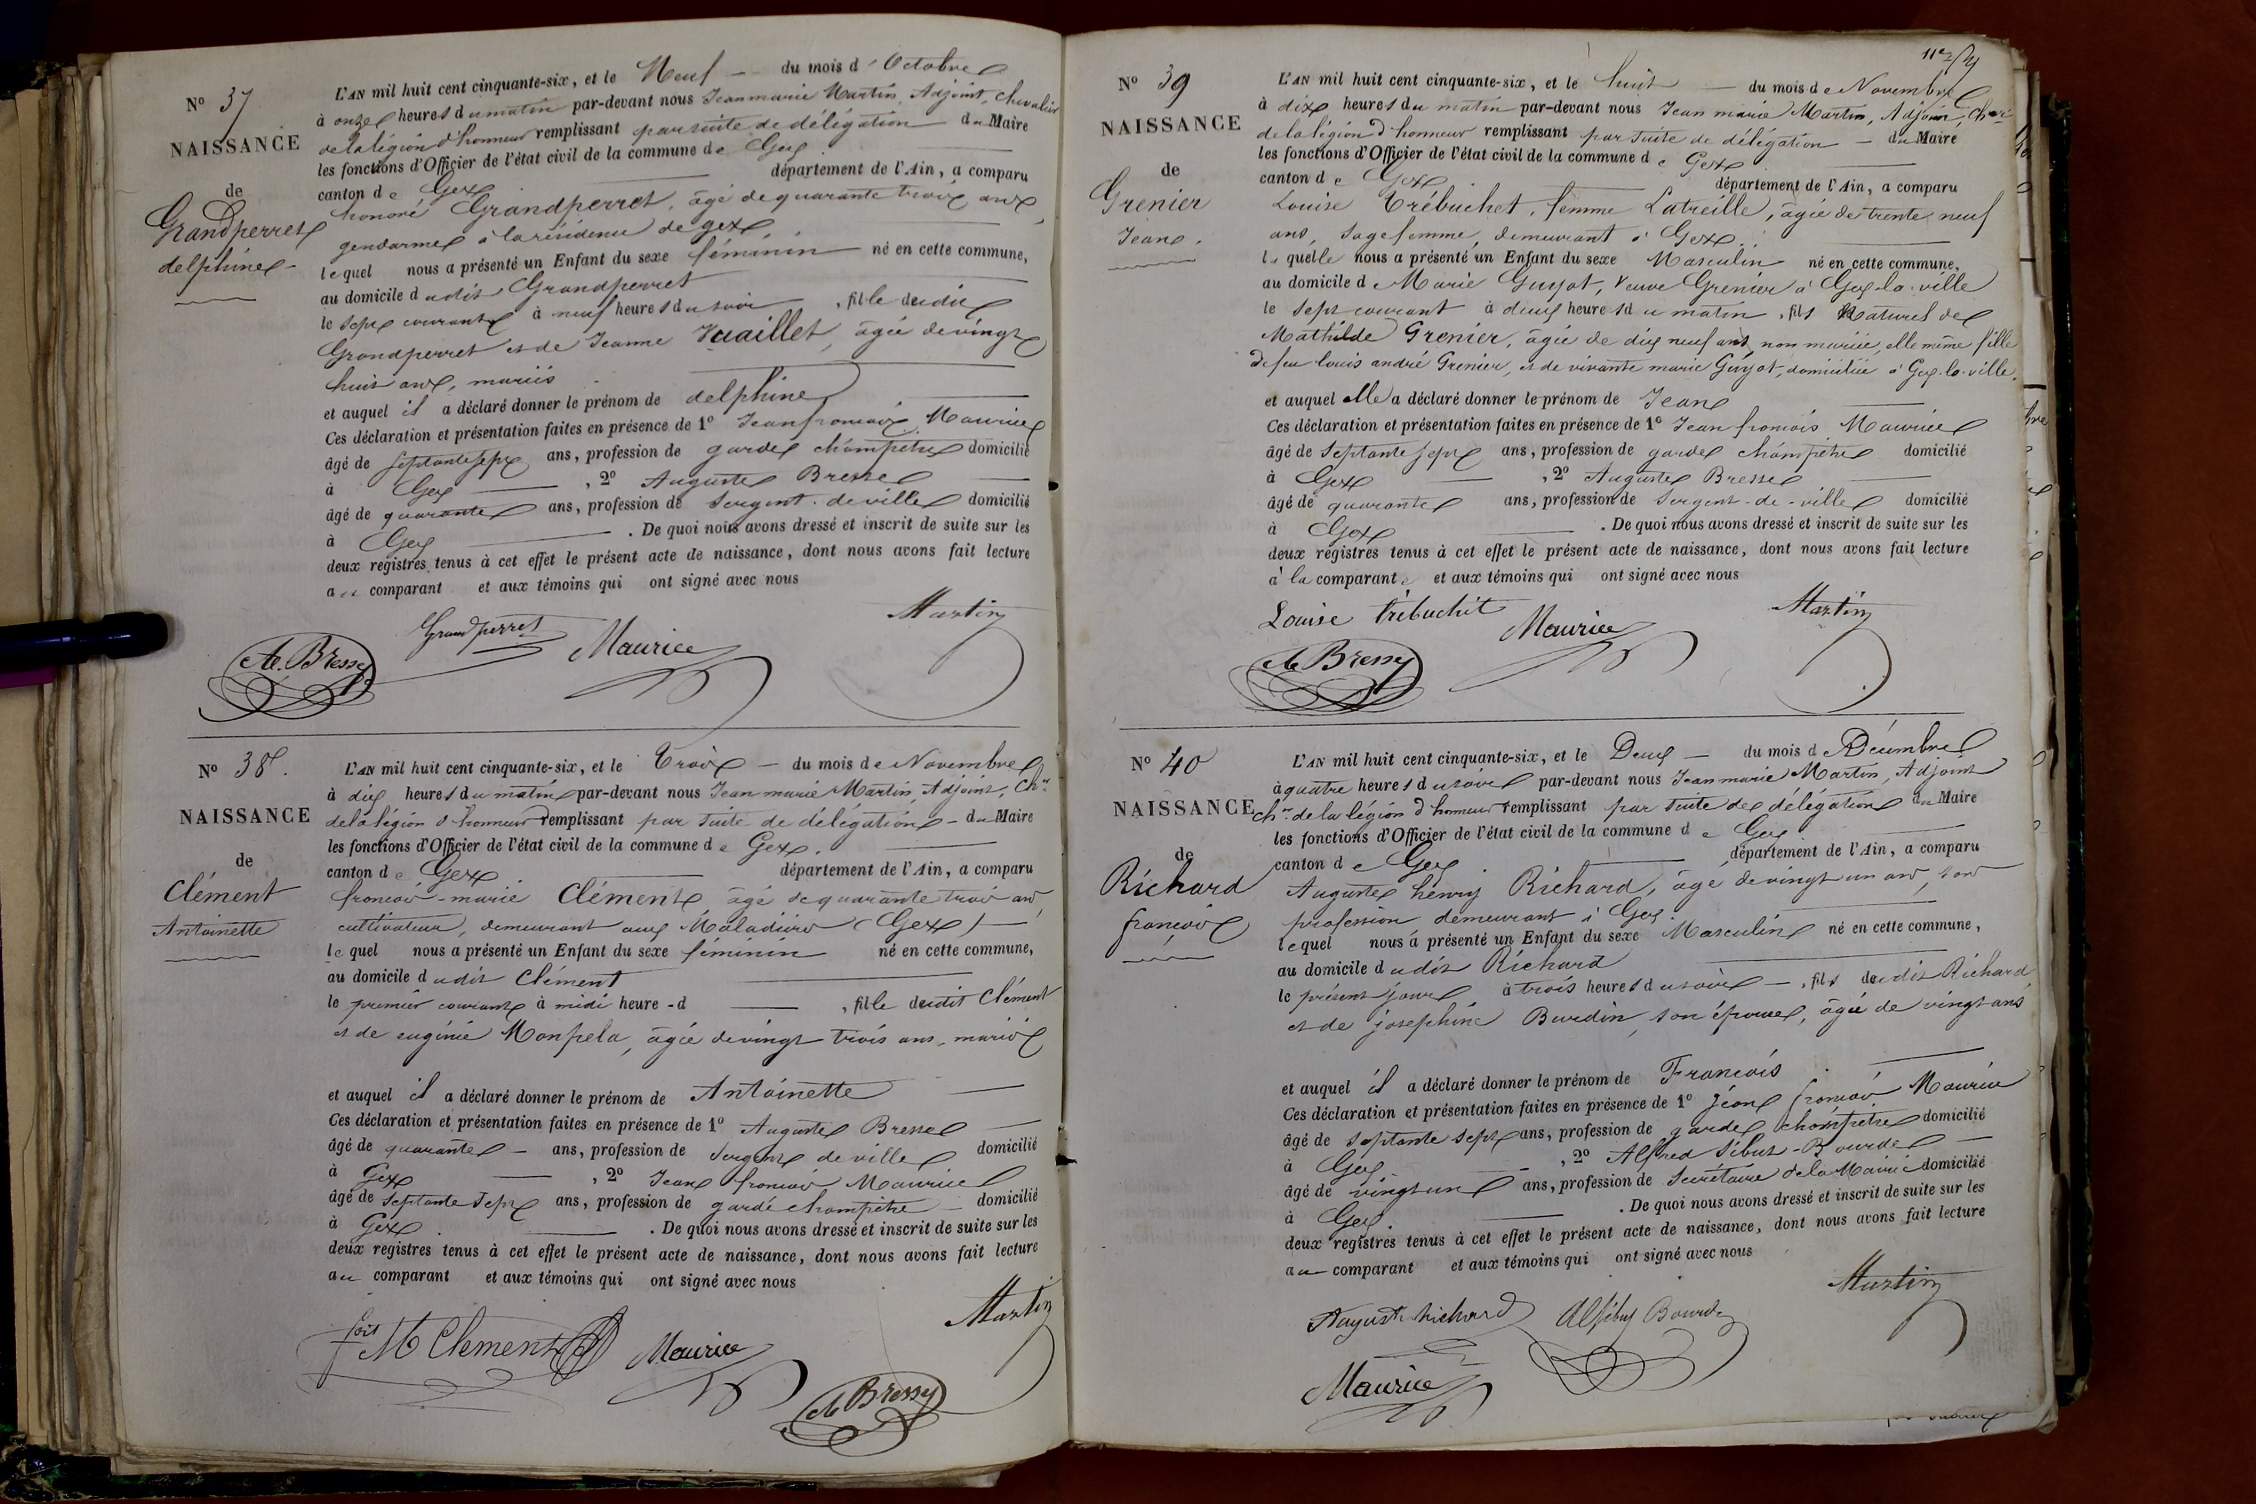 N° 37
NAISSANCE
de
Grandperret
delphine
L'AN mil huit cent cinquante-six, et le Neuf du mois d'Octobre
à onze heures du matin par-devant nous Jean marie Martin, Adjoint, chevalier
de la légion d'honneur remplissant par suite de délégation du Maire
les fonctions d'Officier de l'état civil de la commune de Gex
canton de Gex département de l'Ain, a comparu
honoré Grandperret, âgé de quarante trois ans,
gendarme à la résidence de gex,
lequel nous a présenté un Enfant du sexe féminin né en cette commune,
au domicile dudit Grandperret
le sept courant à neuf heures du soir, fille dudit
Grandperret et de Jeanne Vuaillet, âgée de vingt
huit ans, mariés
et auquel il a déclaré donner le prénom de delphine
Ces déclaration et présentation faites en présence de 1° Jean françois Maurice
âgé de septante sept ans, profession de garde champêtre domicilié
à Gex, 2° Auguste Bresse
âgé de quarante ans, profession de Sergent de ville domicilié
à Gex. De quoi nous avons dressé et inscrit de suite sur les
deux registres tenus à cet effet le présent acte de naissance, dont nous avons fait lecture
au comparant et aux témoins qui ont signé avec nous
Martin
Grandperret
Maurice
Ate Bressy
N° 38.
NAISSANCE
de
Clément
Antoinette
L'AN mil huit cent cinquante-six, et le Trois du mois de Novembre
à dix heures du matin par-devant nous Jean marie Martin, Adjoint, Ch.er
de la légion d'honneur remplissant par suite de délégation du Maire
les fonctions d'Officier de l'état civil de la commune de Gex.
canton de Gex département de l'Ain, a comparu
françois-marie Clément âgé de quarante trois ans,
cultivateur, demeurant aux Maladières (Gex)
lequel nous a présenté un Enfant du sexe féminin né en cette commune,
au domicile dudit Clément
le premier courant à midi heure - d , fille dudit Clément
et de eugénie Monpela, âgée de vingt trois ans, mariés
et auquel il a déclaré donner le prénom de Antoinette
Ces déclaration et présentation faites en présence de 1° Auguste Bresse
âgé de quarante ans, profession de Sergent de ville domicilié
à Gex, 2° Jean françois Maurice
âgé de septante sept ans, profession de garde champêtre domicilié
à Gex. De quoi nous avons dressé et inscrit de suite sur les
deux registres tenus à cet effet le présent acte de naissance, dont nous avons fait lecture
au comparant et aux témoins qui ont signé avec nous
Martin
fois M Clement
Maurice
Ate Bressy
N° 39
NAISSANCE
de
Grenier
Jean.
L'AN mil huit cent cinquante-six, et le huit du mois de Novembre
à dix heures du matin par-devant nous Jean marie Martin, Adjoint, Cher
de la légion d'honneur remplissant par suite de délégation du Maire
les fonctions d'Officier de l'état civil de la commune de Gex
canton de Gex département de l'Ain, a comparu
Louise Trébuchet, femme Latreille, âgée de trente neuf
ans, sage femme, demeurant à Gex.
laquelle nous a présenté un Enfant du sexe Masculin né en cette commune,
au domicile de Marie Guyot, Veuve Grenier à Gex-la-ville
le sept courant à deux heures du matin, fils Naturel de
Mathilde Grenier, âgée de dix neuf ans, non mariée, elle même fille
de feu louis andré Grenier, et de vivante marie Guyot, domiciliée à Gex-la-ville.
et auquel elle a déclaré donner le prénom de Jean
Ces déclaration et présentation faites en présence de 1° Jean françois Maurice
âgé de septante sept ans, profession de garde champêtre domicilié
à Gex, 2° Auguste Bresse
âgé de quarante ans, profession de Sergent-de-ville domicilié
à Gex. De quoi nous avons dressé et inscrit de suite sur les
deux registres tenus à cet effet le présent acte de naissance, dont nous avons fait lecture
à la comparante et aux témoins qui ont signé avec nous
Louise trébuchet
Maurice
Martin
Ate Bressy
N° 40
NAISSANCE
de
Richard
françois
L'AN mil huit cent cinquante-six, et le Deux du mois de Décembre
à quatre heures du soir par-devant nous Jean marie Martin, Adjoint
ch.er de la légion d'honneur remplissant par suite de délégation du Maire
les fonctions d'Officier de l'état civil de la commune de Gex
canton de Gex département de l'Ain, a comparu
Auguste henry Richard, âgé de vingt un ans, sans
profession demeurant à Gex.
lequel nous a présenté un Enfant du sexe Masculin né en cette commune,
au domicile dudit Richard
le présent jour à trois heures du soir, fils dudit Richard
et de joséphine Burdin, son épouse, âgée de vingt ans
et auquel il a déclaré donner le prénom de François
Ces déclaration et présentation faites en présence de 1° jean françois Maurice
âgé de septante sept ans, profession de garde champêtre domicilié
à Gex, 2° Alfred Sibut-Bourde
âgé de vingt un ans, profession de Secrétaire de la Mairie domicilié
à Gex. De quoi nous avons dressé et inscrit de suite sur les
deux registres tenus à cet effet le présent acte de naissance, dont nous avons fait lecture
au comparant et aux témoins qui ont signé avec nous
Martin
Auguste Richard
Maurice